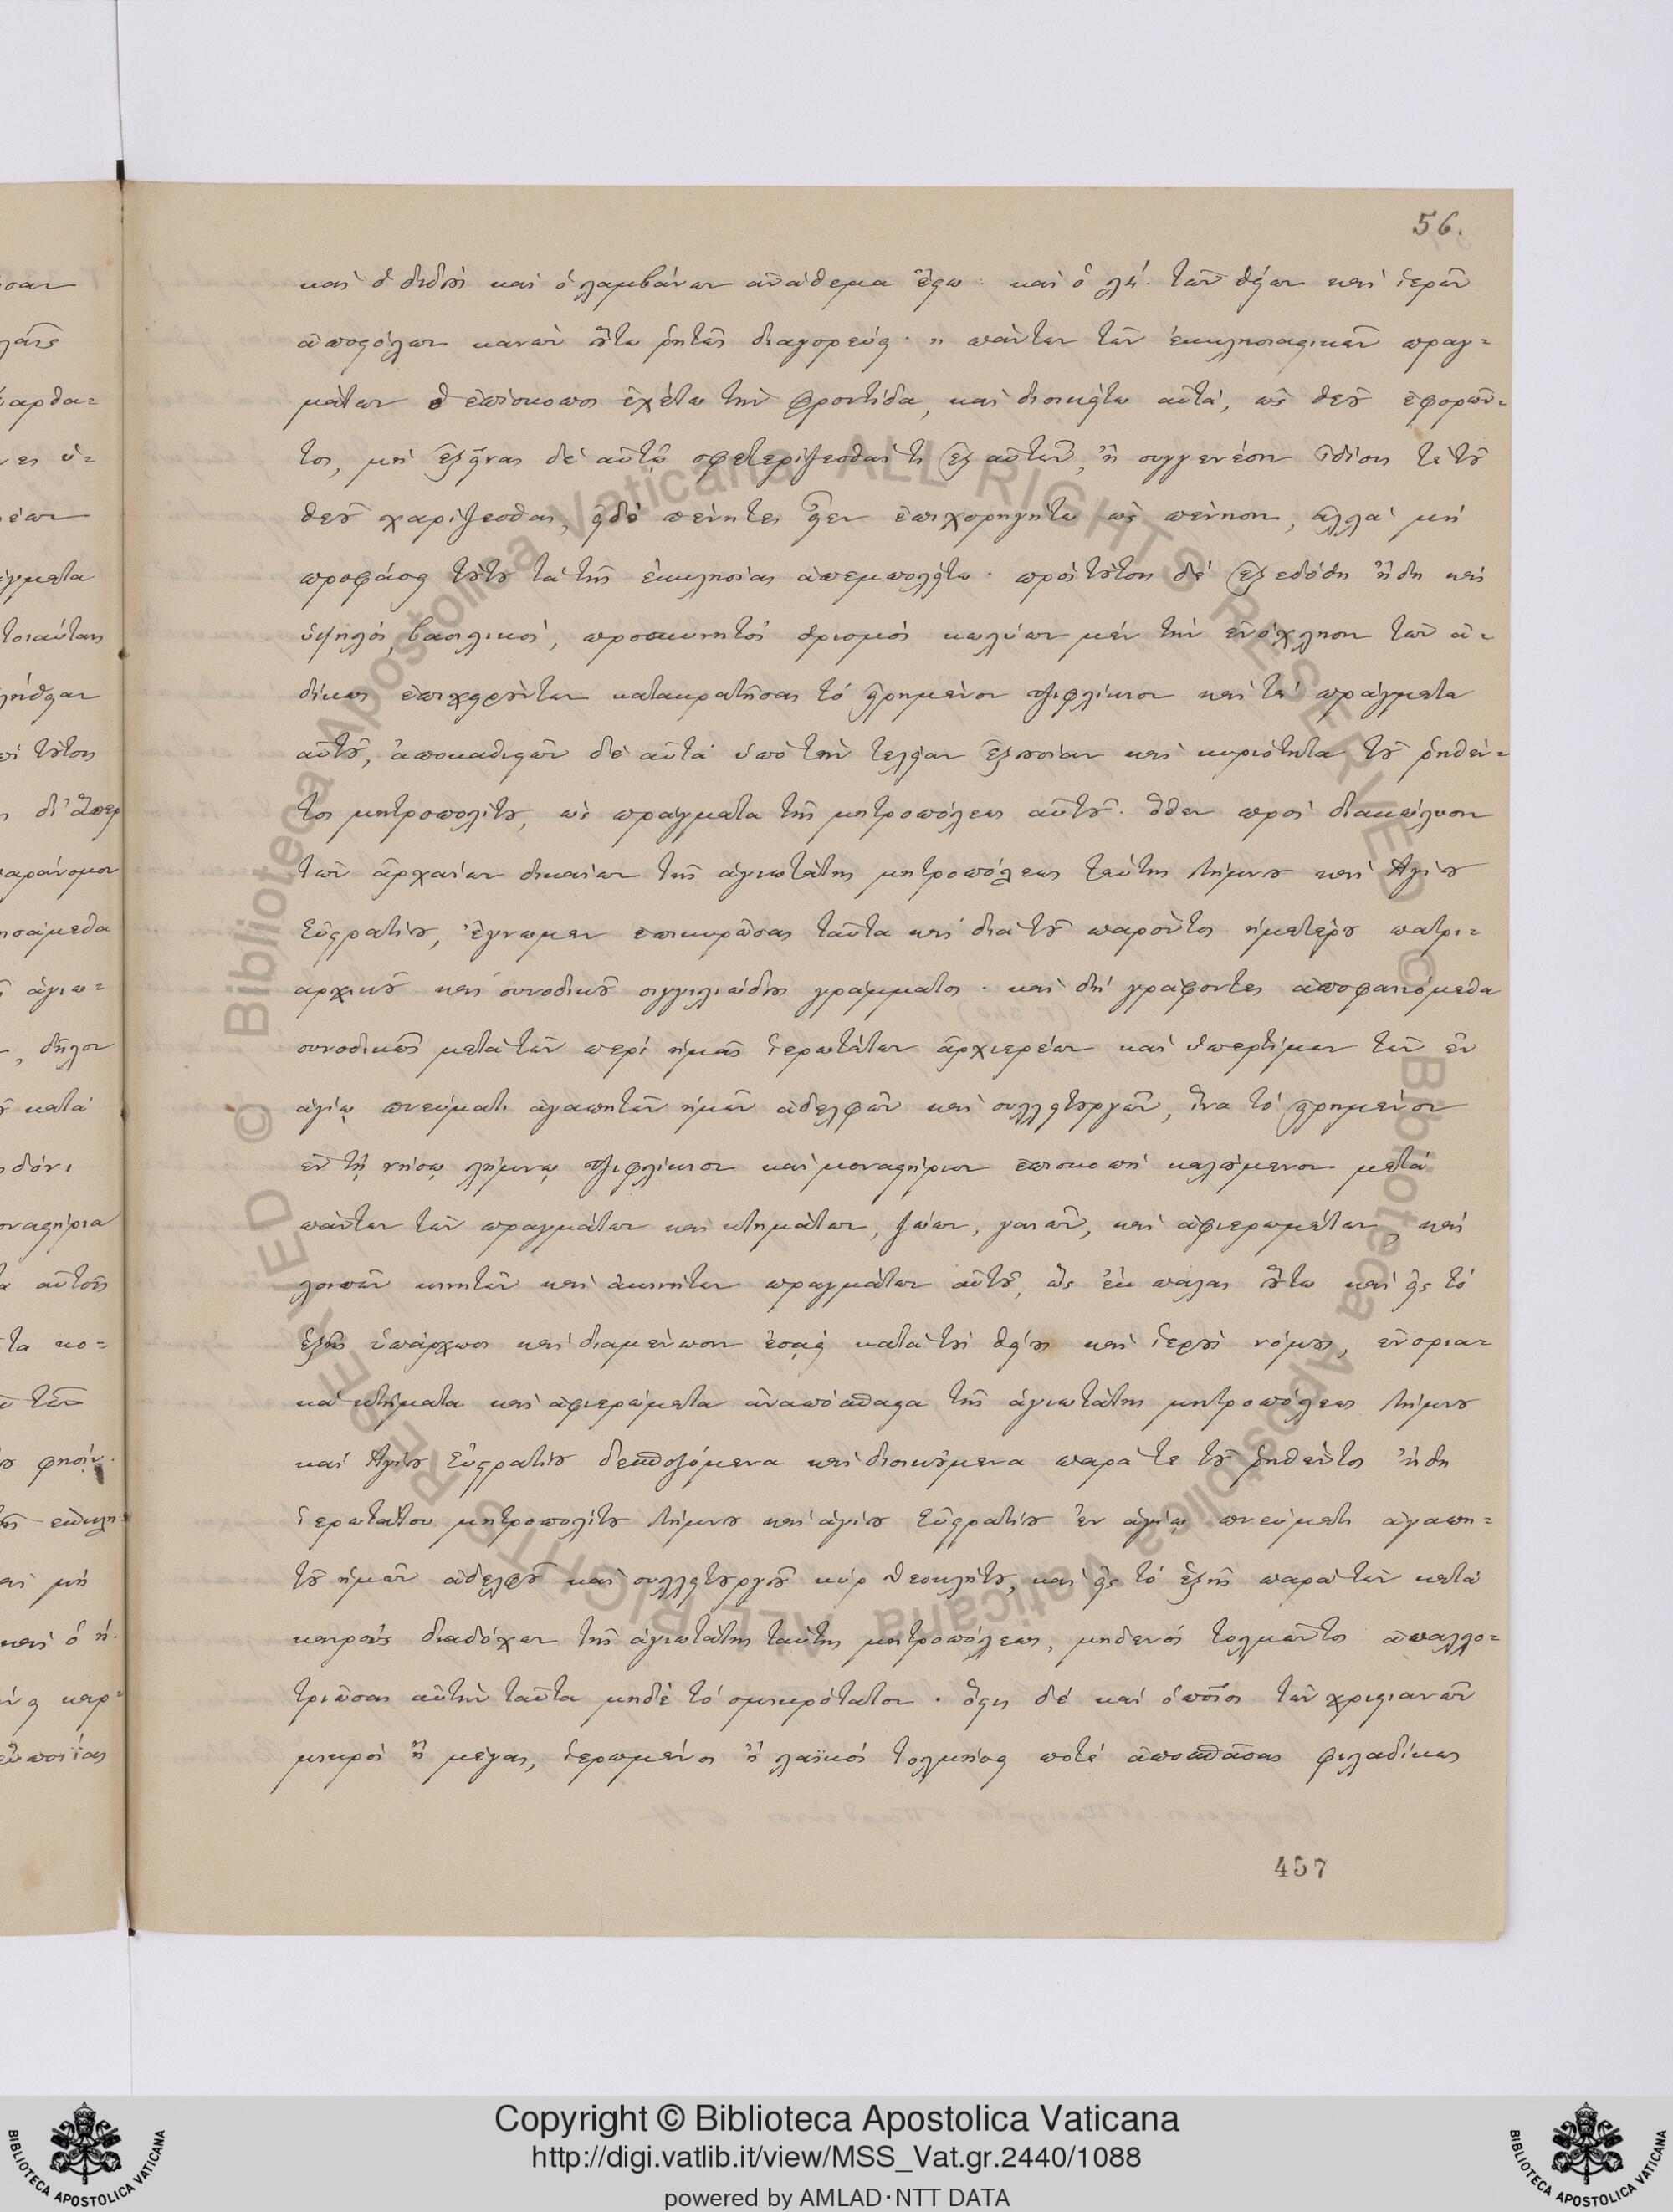 56.
καὶ ὁ διδοὺς καὶ ὁ λαμβάνων ἀνάθεμα ἔστω· καὶ ὁ λή. τῶν θείων καὶ ἱερῶν
ἀποστόλων κανὼν οὕτω ῥητῶς διαγορεύει· „ πάντων τῶν ἐκκλησιαστικῶν πραγ=
μάτων ὁ ἐπίσκοπος ἐχέτω τὴν φροντίδα, καὶ διοικείτω αὐτά, ὡς θεοῦ ἐφορῶν=
τος, μὴ ἐξεῖναι δὲ αὐτῷ σφετερίζεσθαί τι ἐξ αὐτῶν, ἢ συγγενέσιν ἰδίοις τὰ τοῦ
θεοῦ χαρίζεσθαι, εἰ δὲ πένητες εἶεν ἐπιχορηγείτω ὡς πένησιν, ἀλλὰ μὴ
προφάσει τούτου τὰ τῆς ἐκκλησίας ἀπεμπολείτω. πρὸς τούτοις δὲ ἐξεδόθη ἤδη καὶ
ὑψηλὸς, βασιλικὸς, προσκυνητὸς ὁρισμὸς κωλύων μὲν τὴν ἐνόχλησιν τῶν ἀ=
δίκως ἐπιχειρούντων κατακρατῆσαι τὸ εἰρημένον τζιφλίκιον καὶ τὰ πράγματα
αὐτοῦ, ἀποκαθιστῶν δὲ αὐτὰ ὑπὸ τὴν τελείαν ἐξουσίαν καὶ κυριότητα τοῦ ῥηθέν=
τος μητροπολίτου, ὡς πράγματα τῆς μητροπόλεως αὐτοῦ. ὅθεν πρὸς διακώλυσιν
τῶν ἀρχαίων δικαίων τῆς ἁγιωτάτης μητροπόλεως ταύτης Λήμνου καὶ Ἁγίου
Εὐστρατίου, ἔγνωμεν ἐπικυρῶσαι ταῦτα καὶ διὰ τοῦ παρόντος ἡμετέρου πατρι=
αρχικοῦ καὶ συνοδικοῦ σιγγιλιώδους γράμματος. καὶ δὴ γράφοντες ἀποφαινόμεθα
συνοδικῶς μετὰ τῶν περὶ ἡμᾶς ἱερωτάτων ἀρχιερέων καὶ ὑπερτίμων τῶν ἐν
ἁγίῳ πνεύματι ἀγαπητῶν ἡμῶν ἀδελφῶν καὶ συλλειτουργῶν, ἵνα τὸ εἰρημένον
ἐν τῇ νήσῳ λήμνῳ τζιφλίκιον καὶ μοναστήριον ἐπισκοπὴ καλούμενον μετὰ
πάντων τῶν πραγμάτων καὶ κτημάτων, ζώων, γαιῶν, καὶ ἀφιερωμάτων καὶ
λοιπῶν κινητῶν καὶ ἀκινήτων πραγμάτων αὐτοῦ, ὡς ἐκ πάλαι οὕτω καὶ εἰς τὸ
ἑξῆς ὑπάρχωσι καὶ διαμένωσιν ἐσαεὶ κατὰ τοὺς θείους καὶ ἱεροὺς νόμους, ἐνορια=
κὰ κτήματα καὶ ἀφιερώματα ἀναπόσπαστα τῆς ἁγιωτάτης μητροπόλεως Λήμνου
καὶ Ἁγίου Εὐστρατίου δεσποζόμενα καὶ διοικούμενα παρά τε τοῦ ῥηθέντος ἤδη
ἱερωτάτου μητροπολίτου Λήμνου καὶ ἁγίου Εὐστρατίου ἐν ἁγίῳ πνεύματι ἀγαπη=
τοῦ ἡμῶν ἀδελφοῦ καὶ συλλειτουργοῦ κὺρ Νεοκλήτου, καὶ εἰς τὸ ἑξῆς παρὰ τῶν κατὰ
καιροὺς διαδόχων τῆς ἁγιωτάτης ταύτης μητροπόλεως, μηδενὸς τολμῶντος ἀπαλλο=
τριῶσαι αὐτὴν ταῦτα μηδὲ τὸ σμικρότατον. ὅστις δὲ καὶ ὁποῖος τῶν χριστιανῶν
μικρὸς ἢ μέγας, ἱερωμένος ἢ λαϊκὸς τολμήσει ποτὲ ἀποσπᾶσαι φιλαδίκως
457
Copyright © Biblioteca Apostolica Vaticana
http://digi.vatlib.it/view/MSS_Vat.gr.2440/1088
powered by AMLAD·NTT DATA